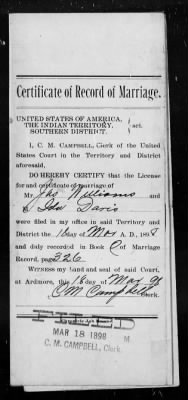 Certificate of Record of Marriage.
UNITED STATES OF AMERICA,
THE INDIAN TERRITORY,
SOUTHERN DISTRICT.
sct.
I, C. M. CAMPBELL, Clerk of the United
States Court in the Territory and District
aforesaid,
DO HEREBY CERTIFY that the License
for and certificate of marriage of
Mr. Jas Williams and
Ida Davis
were filed in my office in said Territory and
District the 16 day of Mar A. D., 1898
and duly recorded in Book C of Marriage
Record, page 326
WITNESS my hand and seal of said Court,
at Ardmore, this 16 day of Mar 98
C M Campbell
Clerk.
FILED
MAR 18 1898
C. M. CAMPBELL, Clerk.